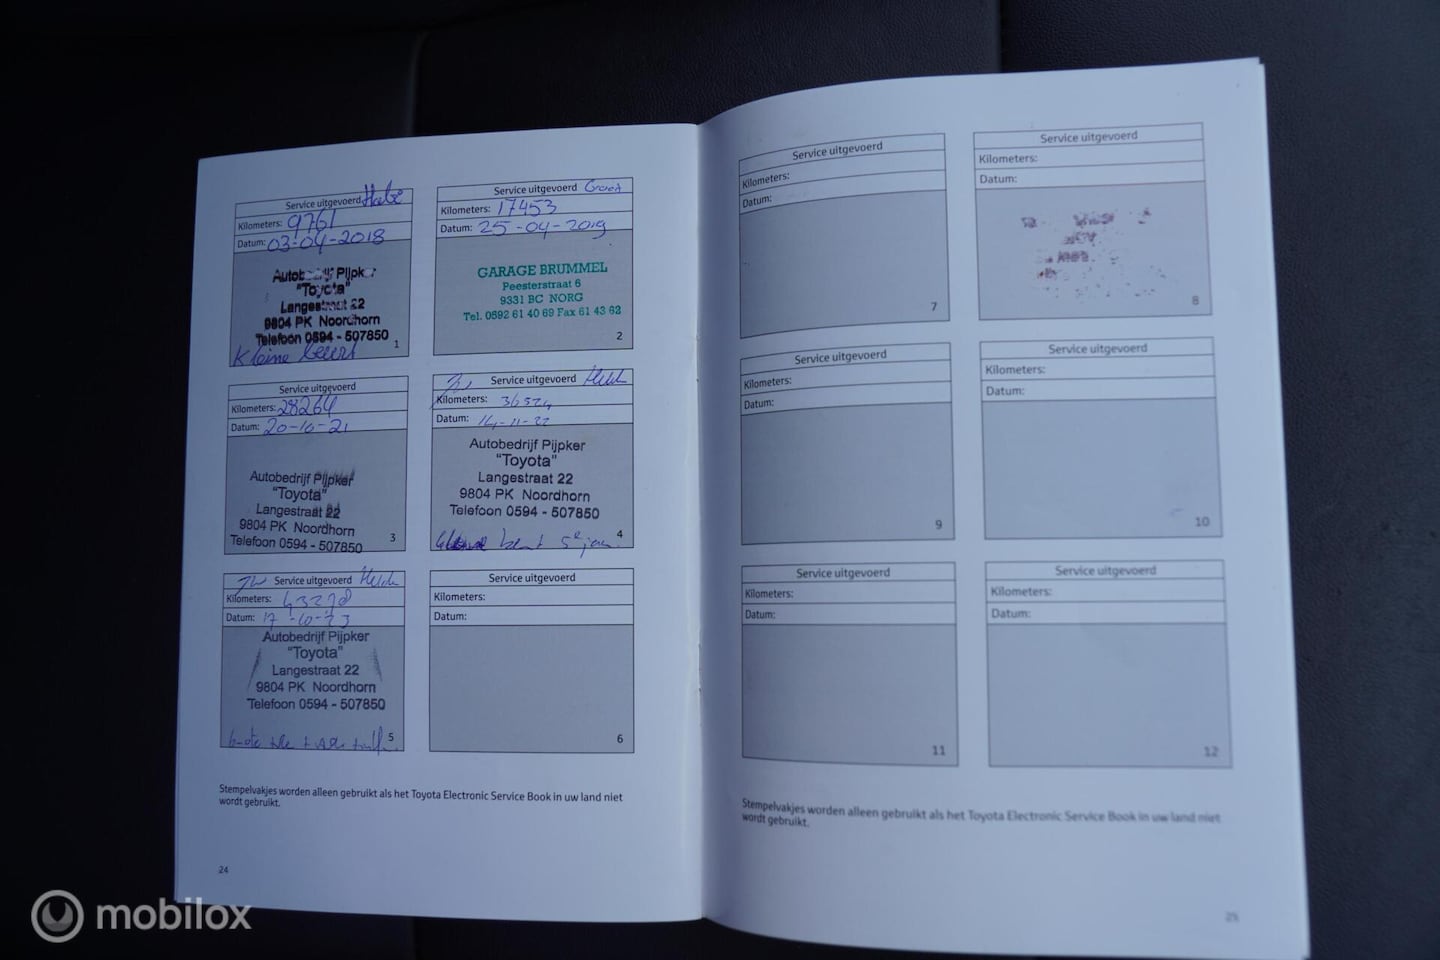 Service uitgevoerd
Kilometers: 9761
Datum: 03-04-2018
Autobedrijf Pijpker
"Toyota"
Langestraat 22
9804 PK Noordhorn
Telefoon 0594 - 507850
Kleine beurt
1
Service uitgevoerd Groot
Kilometers: 17453
Datum: 25-04-2019
GARAGE BRUMMEL
Peesterstraat 6
9331 BC NORG
Tel. 0592 61 40 69 Fax 61 43 62
2
Service uitgevoerd
Kilometers: 28264
Datum: 20-10-21
Autobedrijf Pijpker
"Toyota"
Langestraat 22
9804 PK Noordhorn
Telefoon 0594 - 507850
3
Service uitgevoerd
Kilometers: 36524
Datum: 14-11-22
Autobedrijf Pijpker
"Toyota"
Langestraat 22
9804 PK Noordhorn
Telefoon 0594 - 507850
4
Service uitgevoerd
Kilometers: 43278
Datum: 17-10-23
Autobedrijf Pijpker
"Toyota"
Langestraat 22
9804 PK Noordhorn
Telefoon 0594 - 507850
5
Service uitgevoerd
Kilometers:
Datum:
6
Stempelvakjes worden alleen gebruikt als het Toyota Electronic Service Book in uw land niet
wordt gebruikt.
24
Service uitgevoerd
Kilometers:
Datum:
7
Service uitgevoerd
Kilometers:
Datum:
8
Service uitgevoerd
Kilometers:
Datum:
9
Service uitgevoerd
Kilometers:
Datum:
10
Service uitgevoerd
Kilometers:
Datum:
11
Service uitgevoerd
Kilometers:
Datum:
12
Stempelvakjes worden alleen gebruikt als het Toyota Electronic Service Book in uw land niet
wordt gebruikt.
25
mobilox